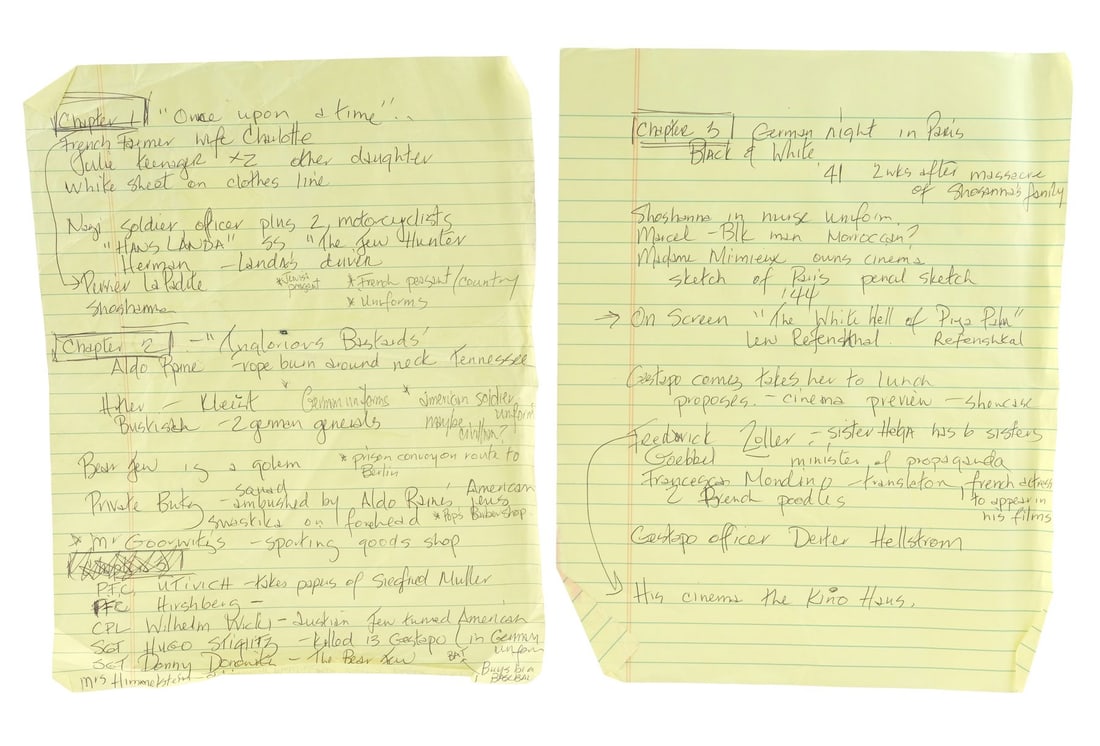 Chapter 1 "Once upon a time"..
French Farmer wife Charlotte
Julie teenager +2 other daughter
White sheet on clothes line
Nazi soldier, officer plus 2 motorcyclists
"HANS LANDA" SS "The Jew Hunter
Herman - Landa's driver
Perrier LaPadite
*Jewish peasant
*French peasant/country
Shoshanna
*Uniforms
Chapter 2 - "Inglorious Bastards'
Aldo Raine - rope burn around neck Tennessee
Hitler - Kleist
* German uniforms
* American soldier uniform
maybe civilian?
- 2 german generals
Bear Jew is a golem
*prison convoy on route to Berlin
Private Butz - squad ambushed by Aldo Raines' American Jews
swastika on forehead
*Pop's Barbershop
* Mr Goorwitz's - sporting goods shop
PFC UTIVICH - takes papers of Siegfried Muller
PFC Hirshberg -
CPL Wilhelm Wicki - Austian Jew turned American
SGT HUGO STIGLITZ - killed 13 Gestapo (in German uniform
SGT Donny Donowitz - The Bear Jew
BAT
Buys bi a
Mrs Himmelstein
Chapter 3 German night in Paris
Black & White
'41 2wks after massacre
of Shosanna's family
Shoshanna in nurse uniform
Marcel - Blk man Morroccan?
Madame Mimieux owns cinema
sketch of Paris pencil sketch
'44
→ On Screen "The White Hell of
Leni
Gestapo comes takes her to lunch
proposes. - cinema preview - showcase
Frederick Zoller - sister Helga has 6 sisters
Goebbel - minister of propaganda
Francesca Mondino - translator, french actress
to appear in
his films
2 French poodles
Gestapo officer Deiter Hellstrom
His cinema the Kino Haus.